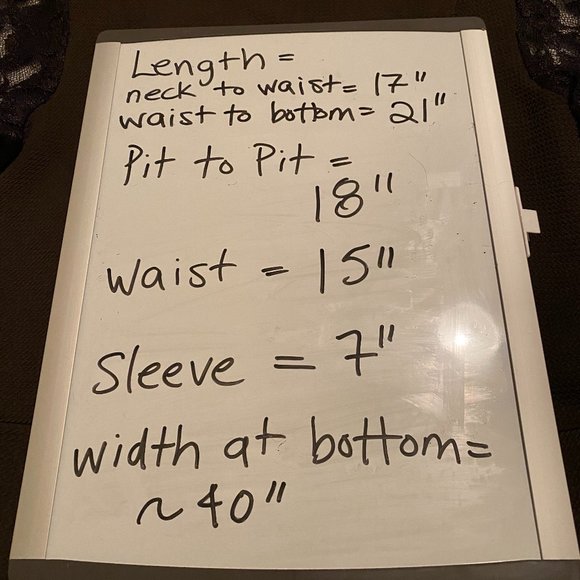 Length =
neck to waist= 17"
waist to bottom= 21"
Pit to Pit =
18"
waist = 15"
Sleeve = 7"
width at bottom=
~40"